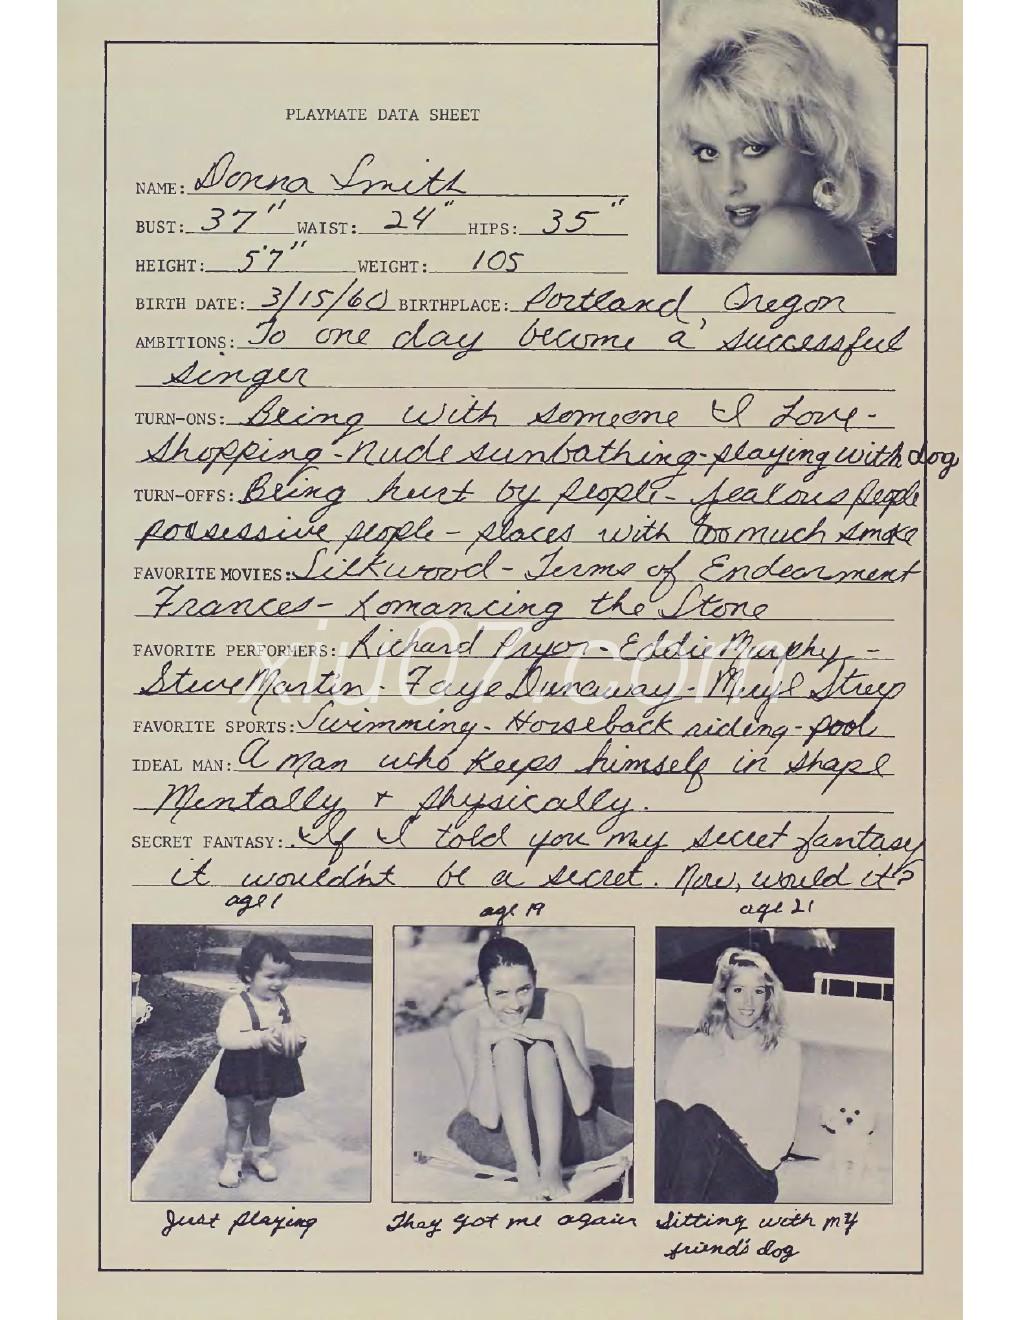 PLAYMATE DATA SHEET
NAME: Donna Smith
BUST: 37" WAIST: 24" HIPS: 35"
HEIGHT: 5'7" WEIGHT: 105
BIRTH DATE: 3/15/60 BIRTHPLACE: Portland, Oregon
AMBITIONS: To one day become a successful
singer
TURN-ONS: Being with someone I Love-
Shopping-Nude sunbathing-playing with dog
TURN-OFFS: Being hurt by people- Jealous people
possessive people - places with too much smoke
FAVORITE MOVIES: Silkwood - Terms of Endearment
Frances- Romancing the Stone
xiu07.com
FAVORITE PERFORMERS: Richard Pryor- Eddie Murphy -
Steve Martin - Faye Dunaway - Meryl Streep
FAVORITE SPORTS: Swimming - Horseback riding - pool
IDEAL MAN: A man who keeps himself in shape
Mentally + physically.
SECRET FANTASY: If I told you my secret fantasy
it wouldn't be a secret. Now, would it?
age 1 age 19 age 21
Just playing They got me again Sitting with my
friend's dog